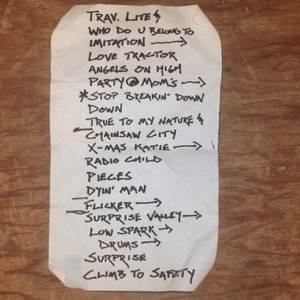 TRAV. LITE
WHO DO U BELONG TO
IMITATION →
LOVE TRACTOR
ANGELS ON HIGH
PARTY @ MOM'S →
*STOP BREAKIN' DOWN
DOWN
TRUE TO MY NATURE
CHAINSAW CITY
X-MAS KATIE →
RADIO CHILD
PIECES
DYIN' MAN
FLICKER →
SURPRISE VALLEY →
LOW SPARK →
DRUMS →
SURPRISE
CLIMB TO SAFETY